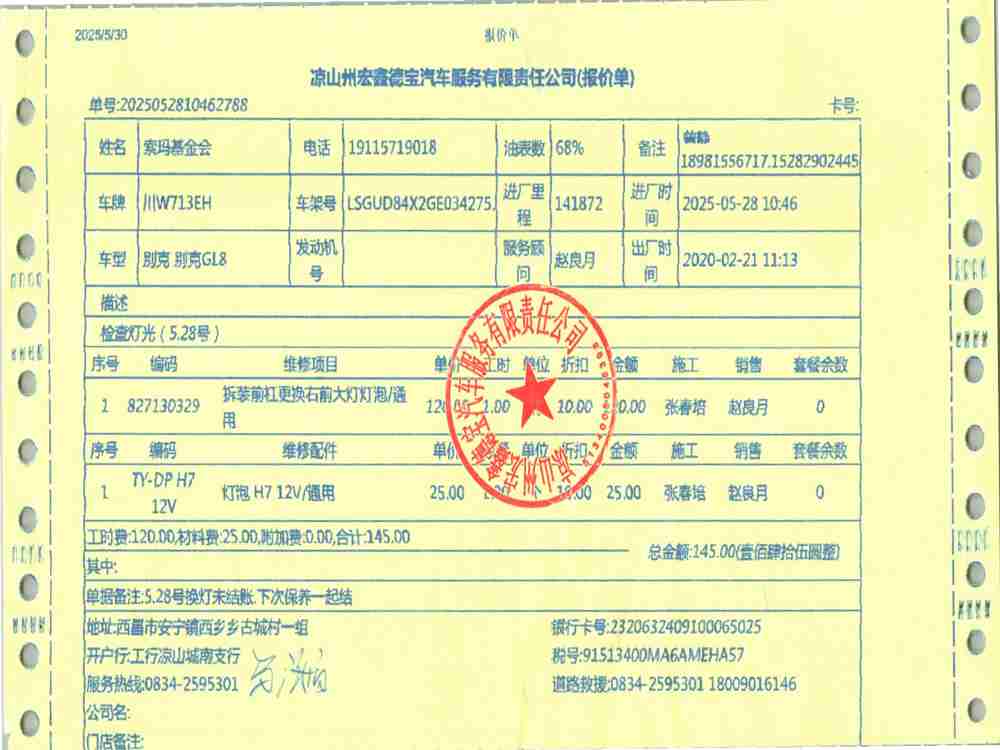 2025/5/30 报价单
凉山州宏鑫德宝汽车服务有限责任公司(报价单)
单号:2025052810462788 卡号:
姓名 索玛基金会 电话 19115719018 油表数 68% 备注 18981556717.15282902445
车牌 川W713EH 车架号 LSGUD84X2GE034275. 进厂里程 141872 进厂时间 2025-05-28 10:46
车型 别克 别克GL8 发动机号 服务顾问 赵良月 出厂时间 2020-02-21 11:13
描述
检查灯光（5.28号）
序号 编码 维修项目 单价 工时 单位 折扣 金额 施工 销售 套餐余数
1 827130329 拆装前杠更换右前大灯灯泡/通用 1.00 10.00 张春培 赵良月 0
序号 编码 维修配件 单价 单位 折扣 金额 施工 销售 套餐余数
1 TY-DP H7 12V 灯泡 H7 12V/通用 25.00 个 10.00 25.00 张春培 赵良月 0
工时费:120.00,材料费:25.00,附加费:0.00,合计:145.00
总金额:145.00(壹佰肆拾伍圆整)
其中:
单据备注:5.28号换灯未结账.下次保养一起结
地址:西昌市安宁镇西乡乡古城村一组 银行卡号:2320632409100065025
开户行:工行凉山城南支行 税号:91513400MA6AMEHA57
服务热线:0834-2595301 道路救援:0834-2595301 18009016146
公司名:
门店备注: